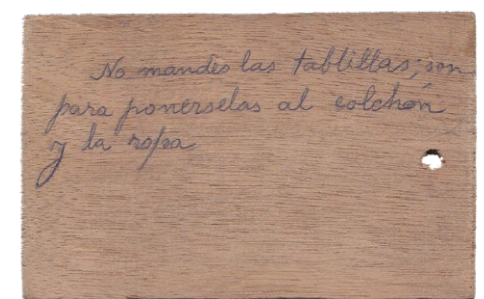 No mandes las tablillas, son
para ponerselas al colchón
y la ropa